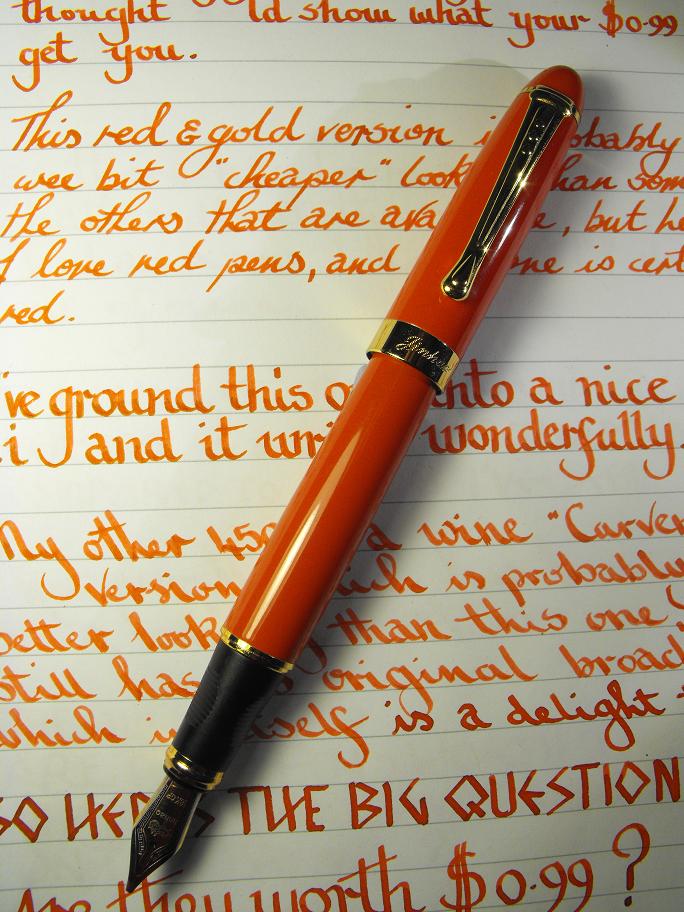 thought ld show what your $0.99
get you.
This red & gold version i obably
wee bit "cheaper" look han som
the others that are ava e, but he
I love red pens, and one is cert
red.
've ground this o nto a nice
i and it wri wonderfully.
My other 450 d wine "Carver
version ich is probably
better look than this one
still has original broad
which i itself is a delight
SO HERES THE BIG QUESTION
Are they worth $0.99?
Jinhao